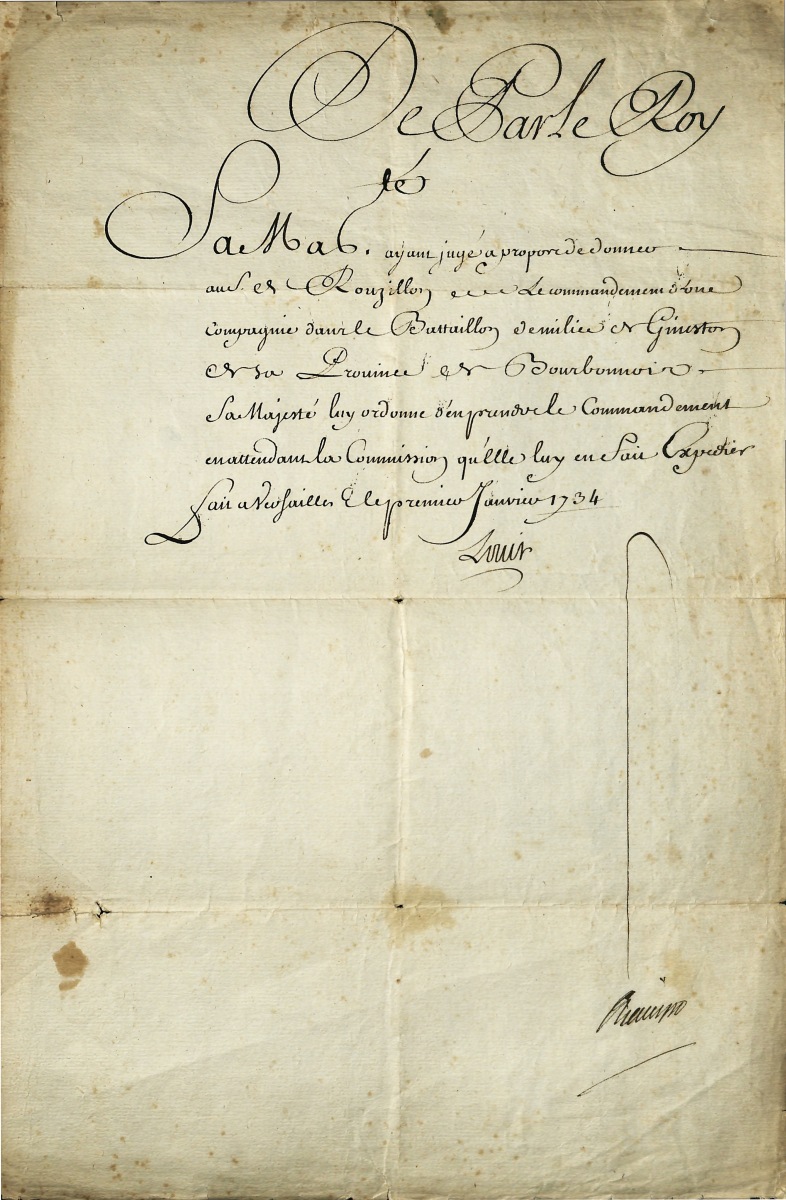 De Par Le Roy
té
Sa Maj. ayant jugé a propos de donner
au S. de Rouzillon Le commandement d'une
Compagnie dans le Battaillon de milice de
de la Province de Bourbonnois.
Sa Majesté luy ordonne d'en prendre le Commandement
en attendant la Commission qu'Elle luy en fait Expedier
fait a Versailles le premier Janvier 1734
Louis